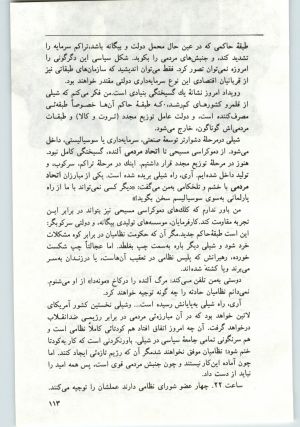 طبقهٔ حاکمی که در عین حال محمل دولت و بیگانه باشد، تراکم سرمایه را
تشدید کند، و جنبش‌های مردمی را بکوبد. شکل سیاسی این دگرگونی را
امروزه نمی‌توان تصور کرد. فقط می‌توان اندیشید که سازمان‌های طبقاتی نیز
از قربانیان اقتصادی این نوع سرمایه‌داری دولتی مقتدر خواهند بود.
رویداد امروز نشانهٔ یك گسیختگی بنیادی است. من فکر می‌کنم که شیلی
از قلمرو کشورهای کم‌رشد، کـه طبقهٔ حاکم آن‌ها خصوصاً طبقه‌ئـی
مصرف‌کننده است، و دولت عامل توزیع مجدد (ثـروت و کالا) و طبقـات
مردمی‌اش گوناگون، خارج می‌شود.
شیلی درمرحلهٔ دشوارتر توسعهٔ صنعتی، سرمایه‌داری یا سوسیالیستی، داخل
می‌شود. از دموکراسی مسیحی تا اتحاد مردمی آلنده، گسیختگی کامل نبود.
هنوز در مرحلهٔ توزیع مجدد قرار داشتیم. اینك در مرحلهٔ تراکم، سرکوب، و
تولید داخل شده‌ایم. آری، راه شیلی بریده شده است. یکی از مبارزان اتحاد
مردمی با خشم و تلخکامی به‌من می‌گفت: «دیگر کسی نمی‌تواند با ما از راه
پارلمانی به‌سوی سوسیالیسم سخن بگوید!»
من باور ندارم که کلك‌های دموکراسی مسیحی نیز بتواند در برابر ایـن
تجربه مقاومت کند. کارفرمایان، موسسه‌های تولیدی بیگانه، و دولتی سرکوبگر:
این است طبقهٔ حاکم جدید. مگر آن که حکومت نظامیان در برابر کوه مشکلات
خرد شود و شیلی دیگر باره به‌سمت چپ بغلطد. اما عجالتاً چپ شکست
خورده، رهبرانش که پلیس نظامی در تعقیب آن‌هاست، یا درزنـدان به‌سر
می‌برند ویا کشته شده‌اند.
دوستی به‌من تلفن می‌کند: مرگ آلنده را درکاخ «مونه‌دا» از او می‌شنوم.
نمی‌دانم نظامیان حادثه را چه گونه توجیه خواهند کرد.
آری، راه شیلی به‌پایانش رسیده است... وشیلی نخستین کشور آمریکای
لاتین خواهد بود که در آن مبارزه‌ئی مردمی در برابر رژیمی ضدانقـلاب
درخواهد گرفت. آن چه امروز اتفاق افتاد هم کودتائی کاملاً نظامی است و
هم سرنگونی تمامی جامعهٔ سیاسی در شیلی. باورنکردنی است که کار به‌کودتا
ختم شود: نظامیان موفق نخواهند شدمگر آن که رژیم تازه‌ئی ایجاد کنند. اما
چون آماده این‌کار نیستند و چون جنبش مردمی قوی است، پس همه امید را
نباید از دست داد.
ساعت ۲۲. چهار عضو شورای نظامی دارند عملشان را توجیه می‌کنند.
۱۱۳